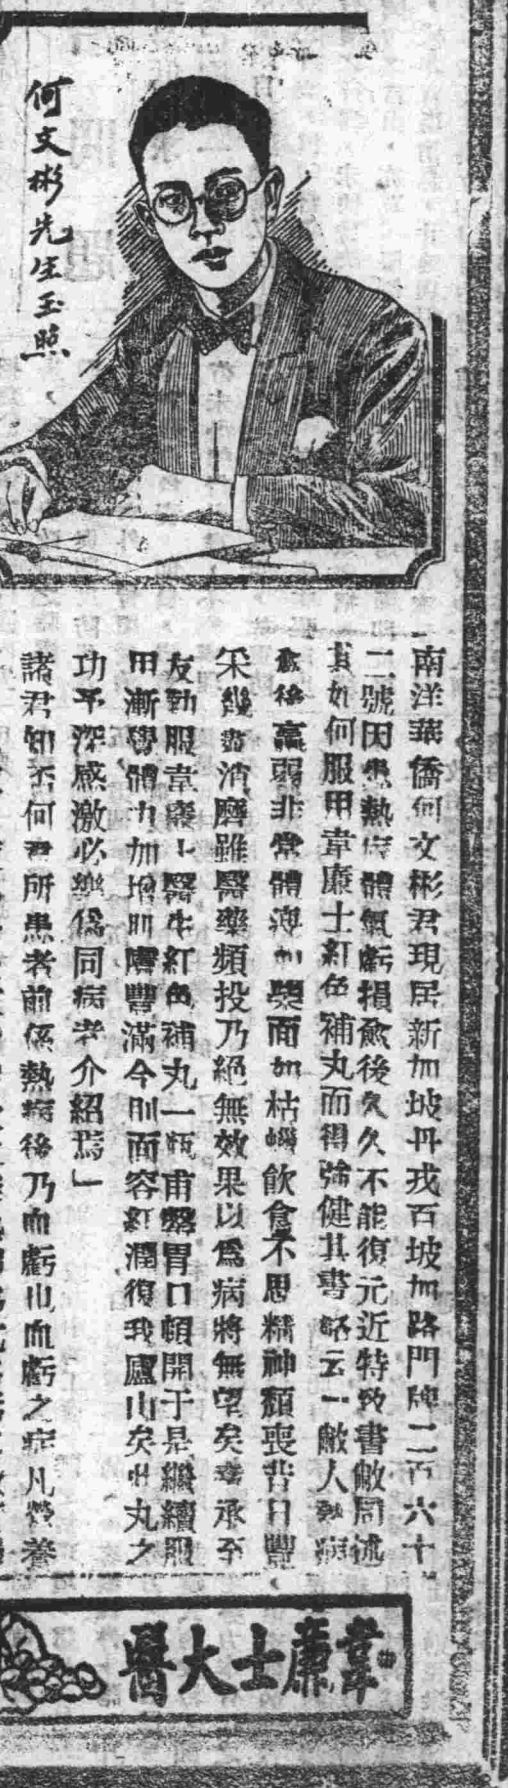 何文彬先生玉照
南洋華僑何文彬君現居新加坡丹戎百坡加路門牌二百六十
二號因患熱病體氣虧損愈後久久不能復元近特致書敝局述
其如何服用韋廉士紅色補丸而得強健其書略云「敝人熱病
愈後羸弱非常體瘦如柴面如枯蠟飲食不思精神頹喪昔日豐
采幾盡消磨雖醫藥頻投乃絕無效果以為病將無望矣幸承至
友勸服韋廉士醫生紅色補丸一瓶甫罄胃口頓開于是繼續服
用漸覺體力加增肌膚豐滿今則面容紅潤復我廬山矣此丸之
功予深感激必樂為同病者介紹焉」
諸君知否何君所患者前係熱病後乃血虧也血虧之症凡營養
韋廉士大醫